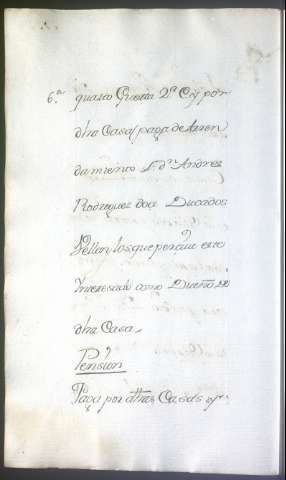 6.ª quarto Quarta 2ª C y por
dha Casa paga de Arren
damiento D. dn Andres
Rodriguez doce Ducados
Vellon los que percive este
Interesado como Dueño de
dha Casa.
Pension
Paga por dthas Casas